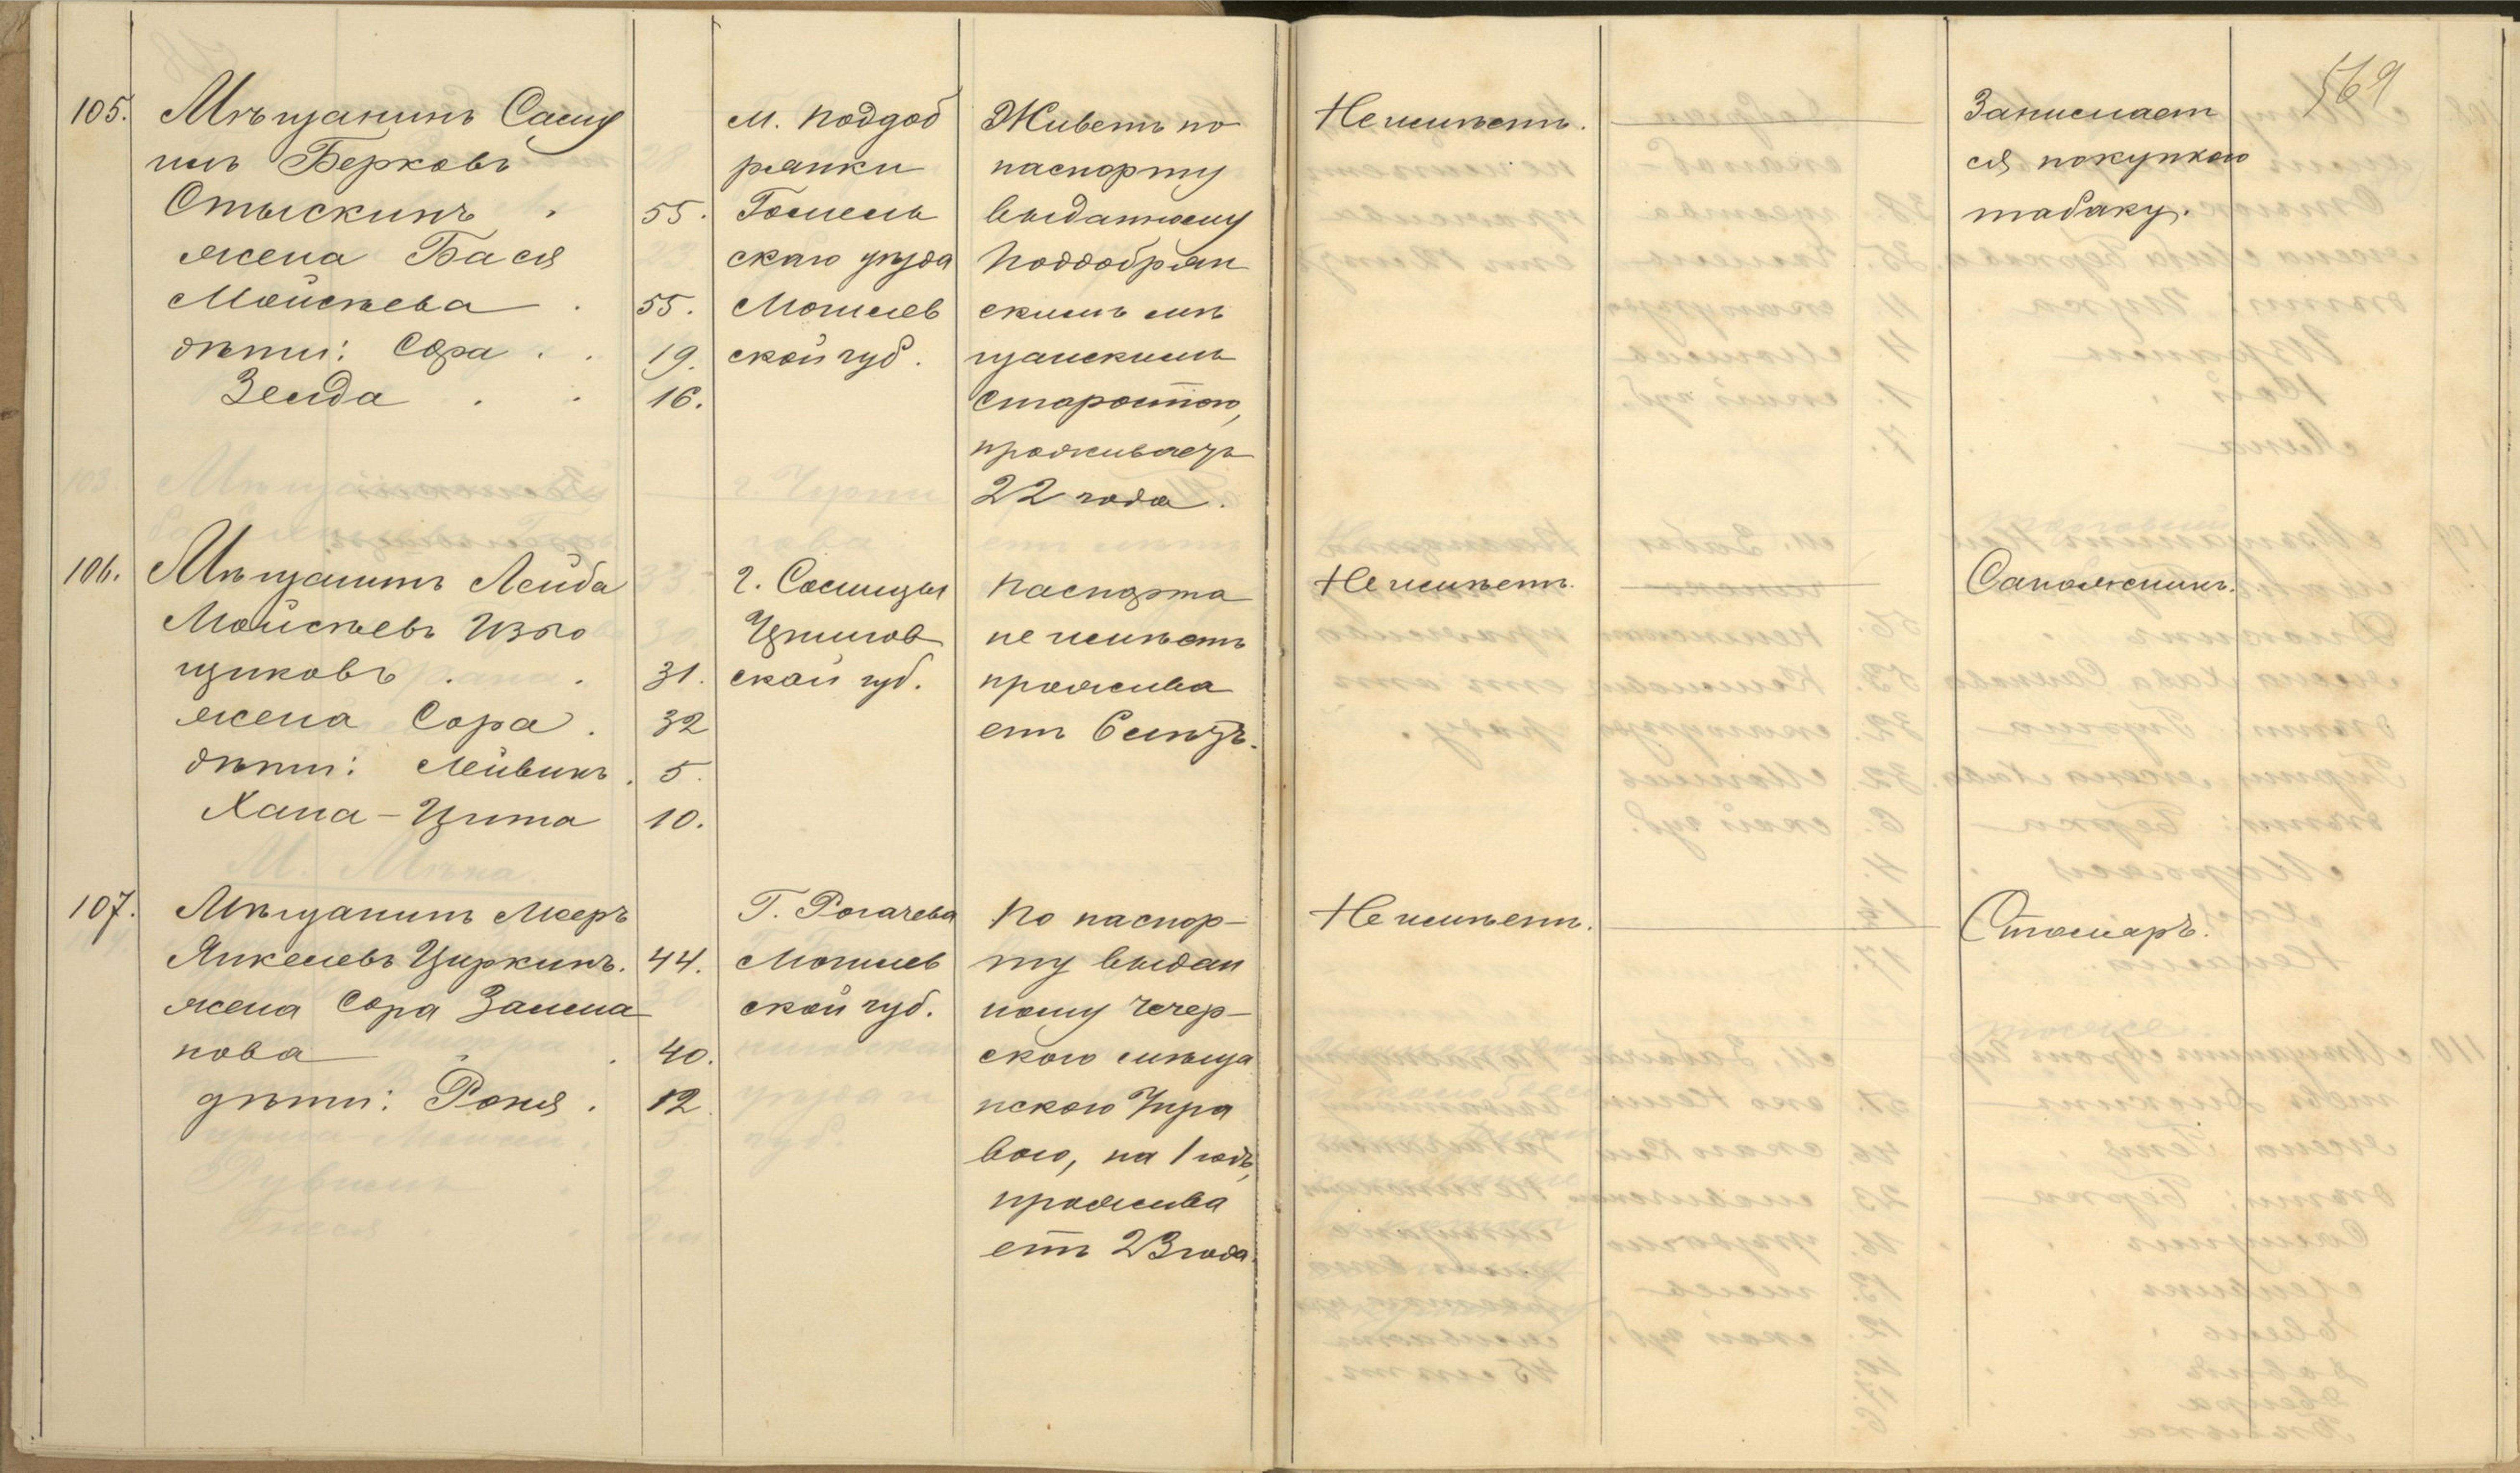 569
105. Мѣщанинъ Саму
илъ Берковъ
Отыскинъ . 55.
жена Бася
Мойсѣева . 55.
дѣти: Сора . . 19.
Зелда . . 16.
м. Поддоб
рянки
Гомель
скаго уѣзда
Могилев
ской губ.
Живетъ по
паспорту
выданному
Поддобрян
скимъ мѣ
щанскимъ
старостою,
проживаетъ
22 года.
Не имѣетъ.
Занимает
ся покупкою
табаку.
106. Мѣщанинъ Лейба
Мойсѣевъ Изво
щиковъ . . 31.
жена Сора . 32
дѣти: Лейвикъ . 5.
Хана-Цита 10.
г. Сосницы
Чернигов
ской губ.
Паспорта
не имѣетъ
прожива
етъ 6 лѣтъ.
Не имѣетъ.
Сапожникъ.
107. Мѣщанинъ Мееръ
Янкелевъ Циркинъ. 44.
жена Сора Залма
нова . . 40.
дѣти: Роня . 12.
Г. Рогачева
Могилев
ской губ.
По паспор-
ту выдан
ному Чечер-
скою мѣща
нскою Упра
вою, на 1 годъ,
прожива
етъ 23 года.
Не имѣетъ.
Столяръ.